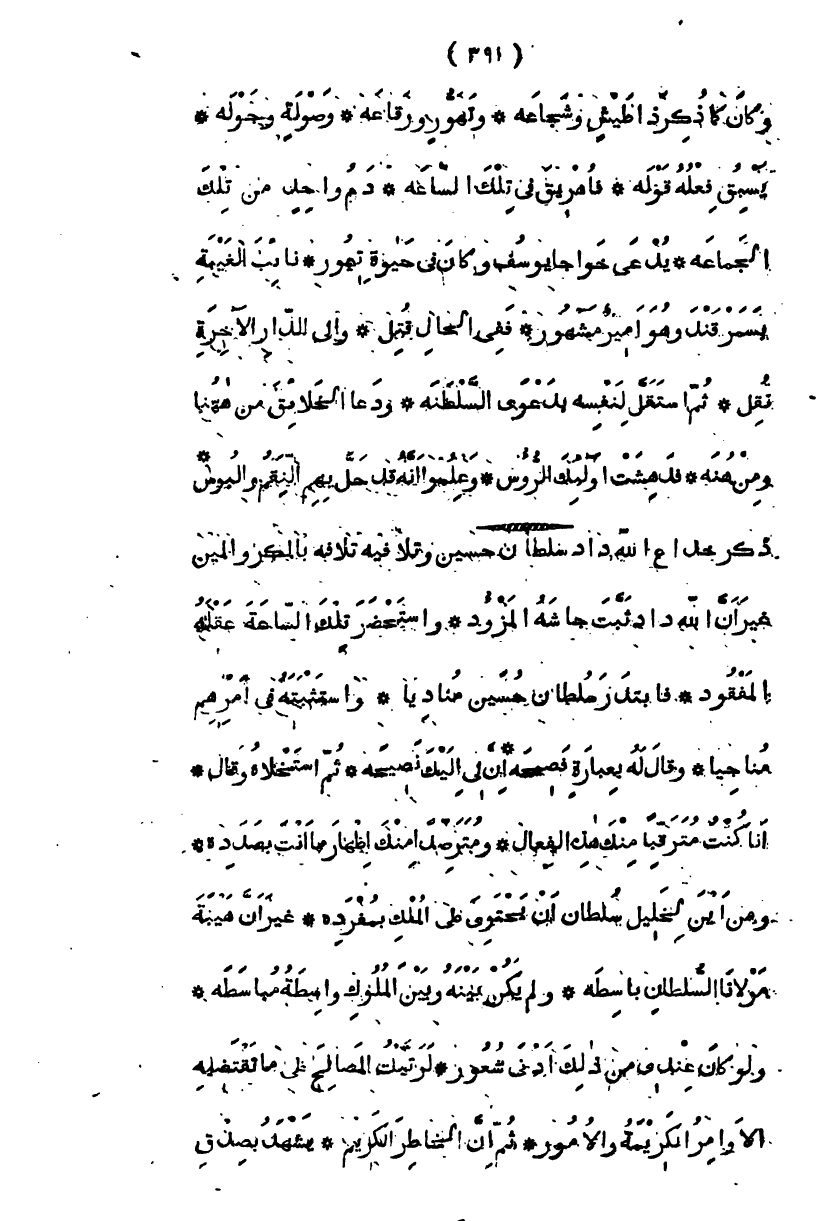 ( ٣٩١ )
وَكانَ كما ذُكِرَ ذا طَيْشٍ وشَجاعَه * وتَهَوُّرٍ ورَقاعَه * وَصَوْلَةٍ وجَوْلَه *
يَسْبِقُ فِعْلُهُ قَوْلَه * فأُهْرِيقَ في تِلْكَ السّاعَه * دَمُ واحِدٍ من تِلْكَ
الجَماعَه * يُدْعَى خَواجا يوسُف وكانَ في حَيٰوة تِمُور * نائبَ الغَيْبَةِ
بِسَمَرْقَنْدَ وهُوَ اَميرٌ مَشْهُور * ففي الحالِ قُتِل * وإلى الدّارِ الآخِرَةِ
نُقِل * ثُمّ استَقَلَّ لِنَفْسِه بدَعْوَى السَّلْطَنَه * ودَعا الخَلائِقَ من هٰهُنا
ومِنْ هُنَه * فدَهِشَتْ اُولٰئِكَ الرُّوُس * وعَلِمُوا انّه قد حَلَّ بِهِم النِقَمُ والبُوس *
ذكر خداع اللّه داد سلطان حسين وتلافيه تلافه بالمكر والمين
غيرَ أنَّ اللّه داد ثَبَّتَ جاشَهُ المَزْؤُد * واستَحْضَرَ تِلْكَ السّاعَةَ عَقْلَهُ
المَفْقُود * فابتَدَرَ سُلطان حُسَين مُنادِيا * واستَثْبَتَهُ في أمْرِهِم
مُناجِيا * وقالَ لَهُ بِعِبارَةٍ فَصِيحَه * إنَّ لي إلَيْكَ نَصِيحَه * ثُمّ استَخْلاهُ وقال *
أنا كُنْتُ مُتَرَقِّبًا مِنْكَ هٰذِه الفِعال * ومُتَرَصِّدًا مِنْكَ إظْهارَ ما اَنْتَ بصَدَدِه *
ومن اَيْنَ لِخَلِيل سُلطان اَنْ يَحْتَوِىَ على المُلْكِ بمُفْرَدِه * غيرَ أنَّ هَيْبَةَ
مَوْلانا السُّلطانِ باسِطَه * ولم يَكُنْ بَيْنَه وبَيْنَ المُلُوكِ واسِطَةُ مُباسَطَه *
ولو كانَ عِنْدى من ذٰلِكَ اَدْنَى شُعُور * لَرَتَّبْتُ المَصالِحَ على ما تَقْتَضِيه
الاَوامِرُ الكَرِيمَةُ والاُمُور * ثُمّ إنَّ الخاطِرَ الكَرِيمَ * يَشْهَدُ بصِدْقِ